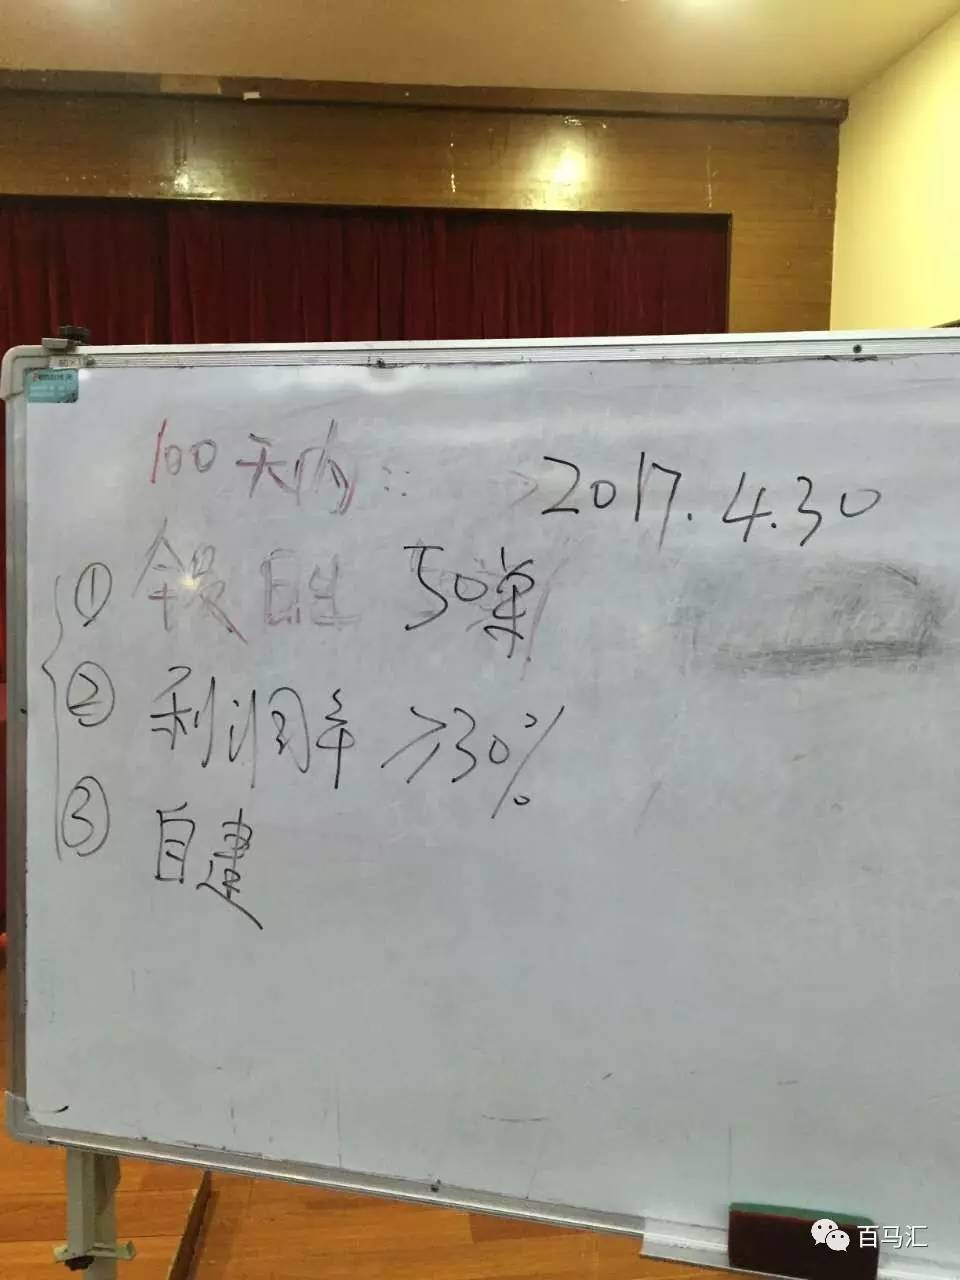 100天内: 2017.4.30
① 全 自 50单
② 利润率 ≥30%
③ 自建
百马汇